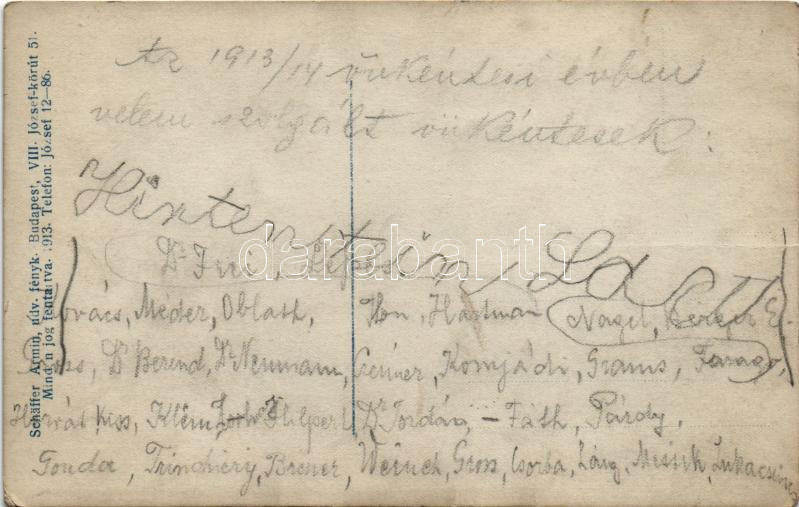 Az 1913/14 önkéntesi évben
velem szolgált önkéntesek:
Hinterstein, La
Dr
Kovács, Meder, Oblath, Hon, Hartman Nagel, Berger E.
Dr Berend, Dr Neumann, Komjádi, Grams, Faragó,
Horvát, Kiss, Klein Hilpert Dr Jordán, - Fáth, Párdy,
Gonda, Brener, Weinch, Gross, Csorba, Láng, Messik, Lukacsin
Schäffer Ármin, udv. fényk. Budapest, VIII. József-körút 51.
Minden jog fentartva. 1913. Telefon: József 12—86.
darabanth